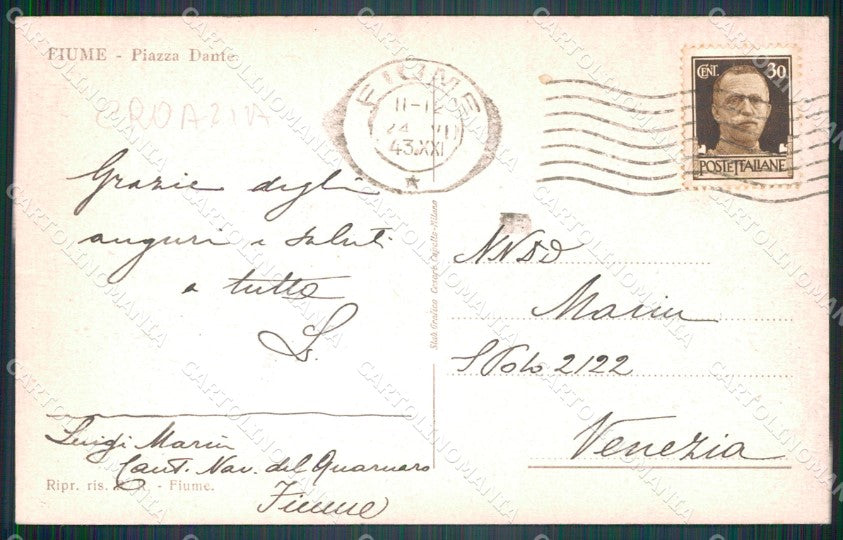 FIUME - Piazza Dante
CROAZIA
FIUME
11-12
24 VII
43.XXI
CENT. 30
POSTE ITALIANE
Grazie degli
auguri e saluti
a tutte
L.
Luigi Marin
Cant. Nav. del Quarnaro
Fiume
Ripr. ris. - Fiume.
Stab. Grafico Cesare Capello-Milano
NNDD
Marin
S Polo 2122
Venezia
CARTOLINOMANIA